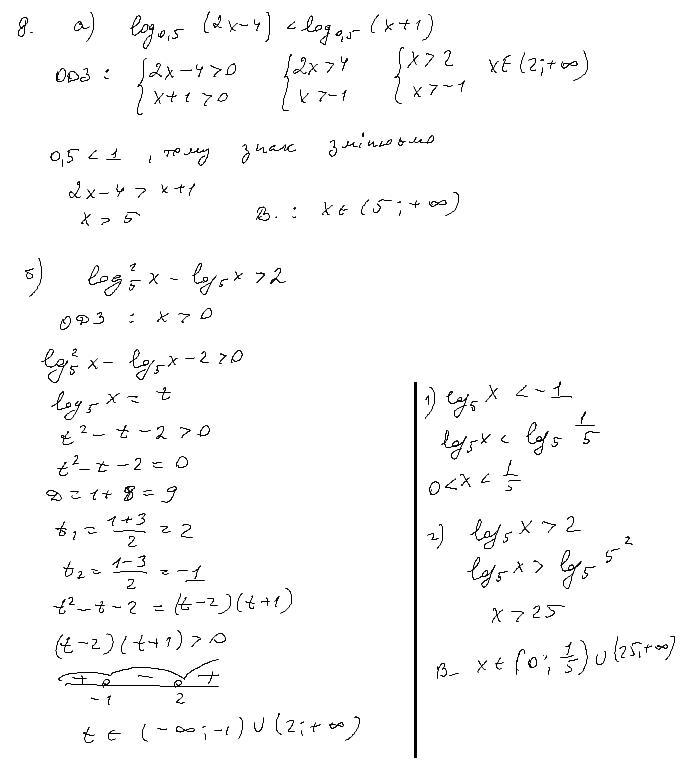 8. а) log₀,₅ (2x-4) < log₀,₅ (x+1)
ОДЗ : { 2x-4>0 { 2x>4 { x>2 x∈(2;+∞)
{ x+1>0 { x>-1 { x>-1
0,5 < 1 , тому знак змінюємо
2x-4 > x+1
x > 5 В. : x∈(5;+∞)
б) log₅² x - log₅ x > 2
ОДЗ : x > 0
log₅² x - log₅ x - 2 > 0
log₅ x = t
t² - t - 2 > 0
t² - t - 2 = 0
D = 1 + 8 = 9
t₁ = (1+3)/2 = 2
t₂ = (1-3)/2 = -1
t² - t - 2 = (t-2)(t+1)
(t-2)(t+1) > 0
+ - +
-1 2
t ∈ (-∞;-1) ∪ (2;+∞)
1) log₅ x < -1
log₅ x < log₅ 1/5
0 < x < 1/5
2) log₅ x > 2
log₅ x > log₅ 5²
x > 25
В- x ∈ (0; 1/5) ∪ (25;+∞)